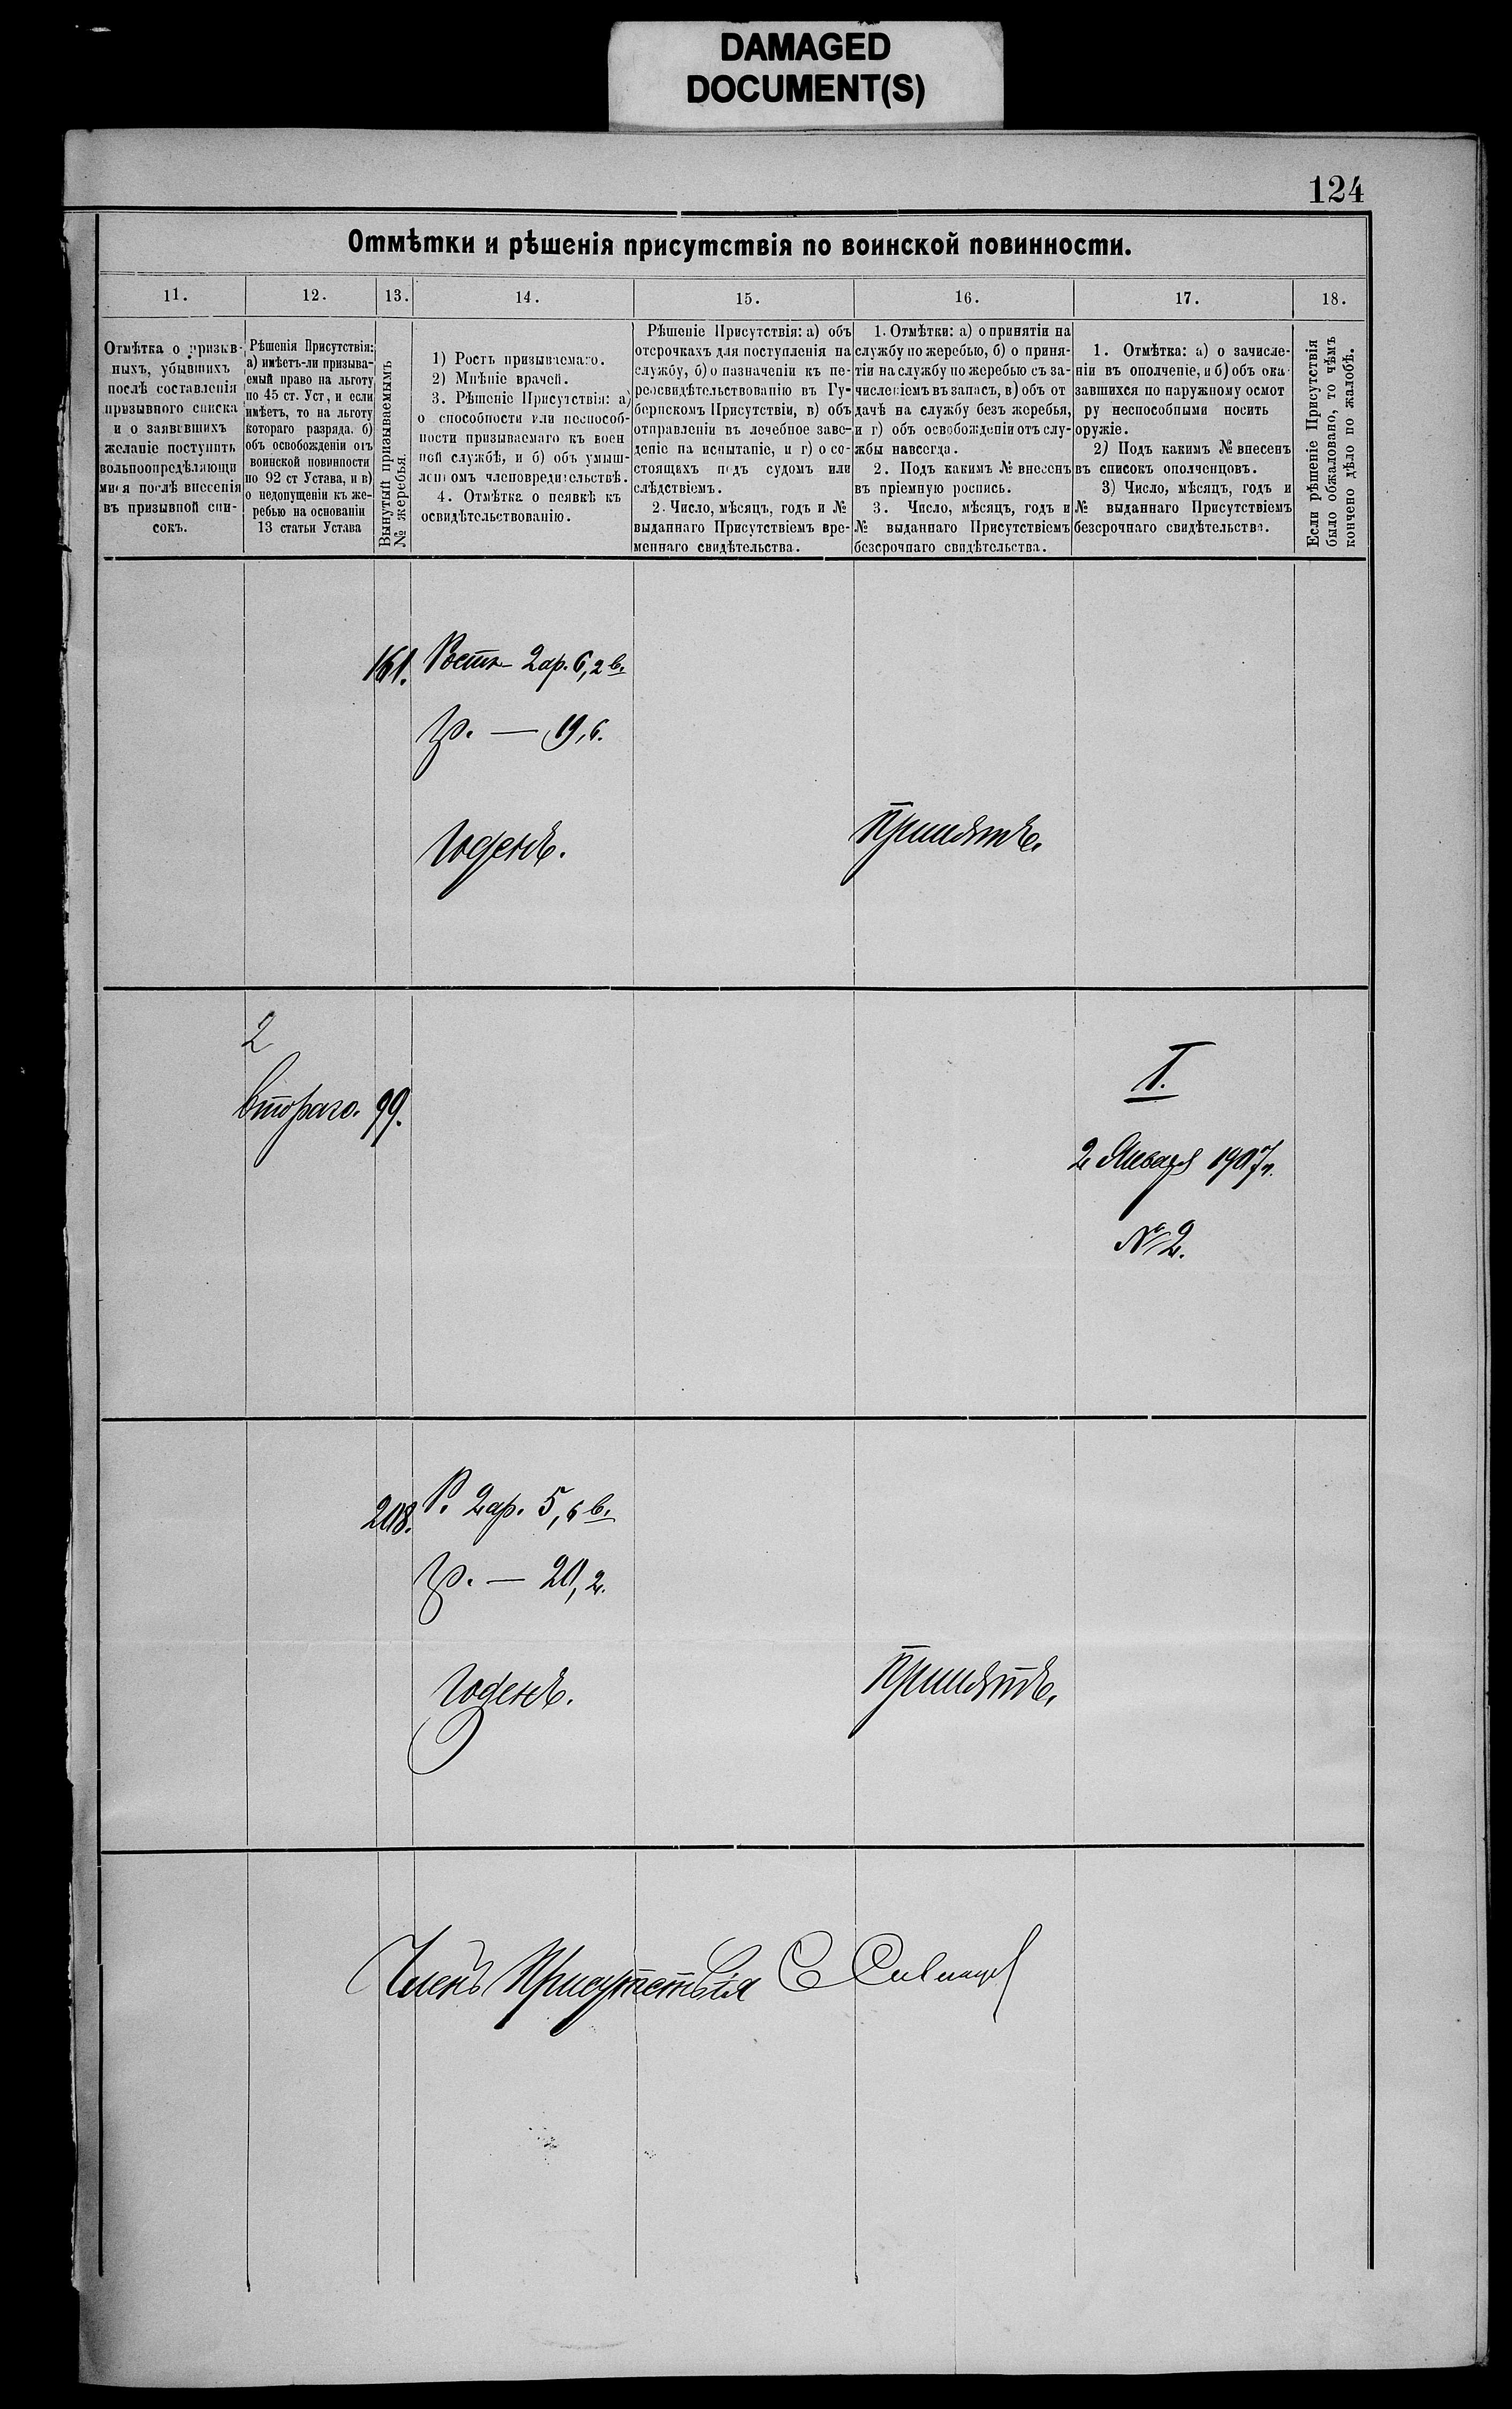 DAMAGED
DOCUMENT(S)
124
Отмѣтки и рѣшенія присутствія по воинской повинности.
11. 12. 13. 14. 15. 16. 17. 18.
Отмѣтка о призыв-
ныхъ, убывшихъ
послѣ составленія
призывного списка
и о заявившихъ
желаніе поступить
вольноопредѣляющи
мися послѣ внесенія
въ призывной спи-
сокъ.
Рѣшенія Присутствія:
а) имѣетъ-ли призыва-
емый право на льготу
по 45 ст. Уст, и если
имѣетъ, то на льготу
котораго разряда. б)
объ освобожденіи отъ
воинской повинности
по 92 ст Устава, и в)
о недопущеніи къ же-
ребью на основаніи
13 статьи Устава
Вынутый призываемымъ
№ жеребья.
1) Ростъ призываемаго.
2) Мнѣніе врачей.
3. Рѣшеніе Присутствія: а)
о способности или неспособ-
ности призываемаго къ воен
ной службѣ, и б) объ умыш-
ленномъ членовредительствѣ.
4. Отмѣтка о неявкѣ къ
освидѣтельствованію.
Рѣшеніе Присутствія: а) объ
отсрочкахъ для поступленія на
службу, б) о назначеніи къ пе-
реосвидѣтельствованію въ Гу-
бернскомъ Присутствіи, в) объ
отправленіи въ лечебное заве-
деніе на испытаніе, и г) о со-
стоящихъ подъ судомъ или
слѣдствіемъ.
2. Число, мѣсяцъ, годъ и №
выданнаго Присутствіемъ вре-
меннаго свидѣтельства.
1. Отмѣтки: а) о принятіи на
службу по жеребью, б) о приня-
тіи на службу по жеребью съ за-
численіемъ въ запасъ, в) объ от
дачѣ на службу безъ жеребья,
и г) объ освобожденіи отъ слу-
жбы навсегда.
2. Подъ какимъ № внесенъ
въ пріемную роспись.
3. Число, мѣсяцъ, годъ и
№ выданнаго Присутствіемъ
безсрочнаго свидѣтельства.
1. Отмѣтка: а) о зачисле-
ніи въ ополченіе, и б) объ ока-
завшихся по наружному осмот
ру неспособными носить
оружіе.
2) Подъ какимъ № внесенъ
въ списокъ ополченцовъ.
3) Число, мѣсяцъ, годъ и
№ выданнаго Присутствіемъ
безсрочнаго свидѣтельства.
Если рѣшеніе Присутствія
было обжаловано, то чѣмъ
кончено дѣло по жалобѣ.
161. Ростъ 2 ар. 6,2 в.
гр. — 19,6.
Годенъ. Принятъ.
2
Втораго. 99.
I.
2 Января 1907 г.
№ 2.
208. Р. 2 ар. 5,6 в.
гр. — 20,2.
Годенъ. Принятъ.
Членъ Присутствія С